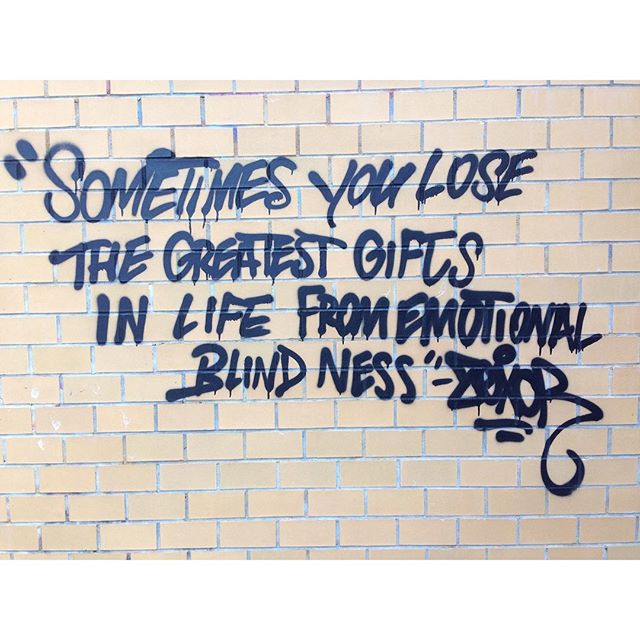 "SOMETIMES YOU LOSE
THE GREATEST GIFTS
IN LIFE FROM EMOTIONAL
BLIND NESS"-